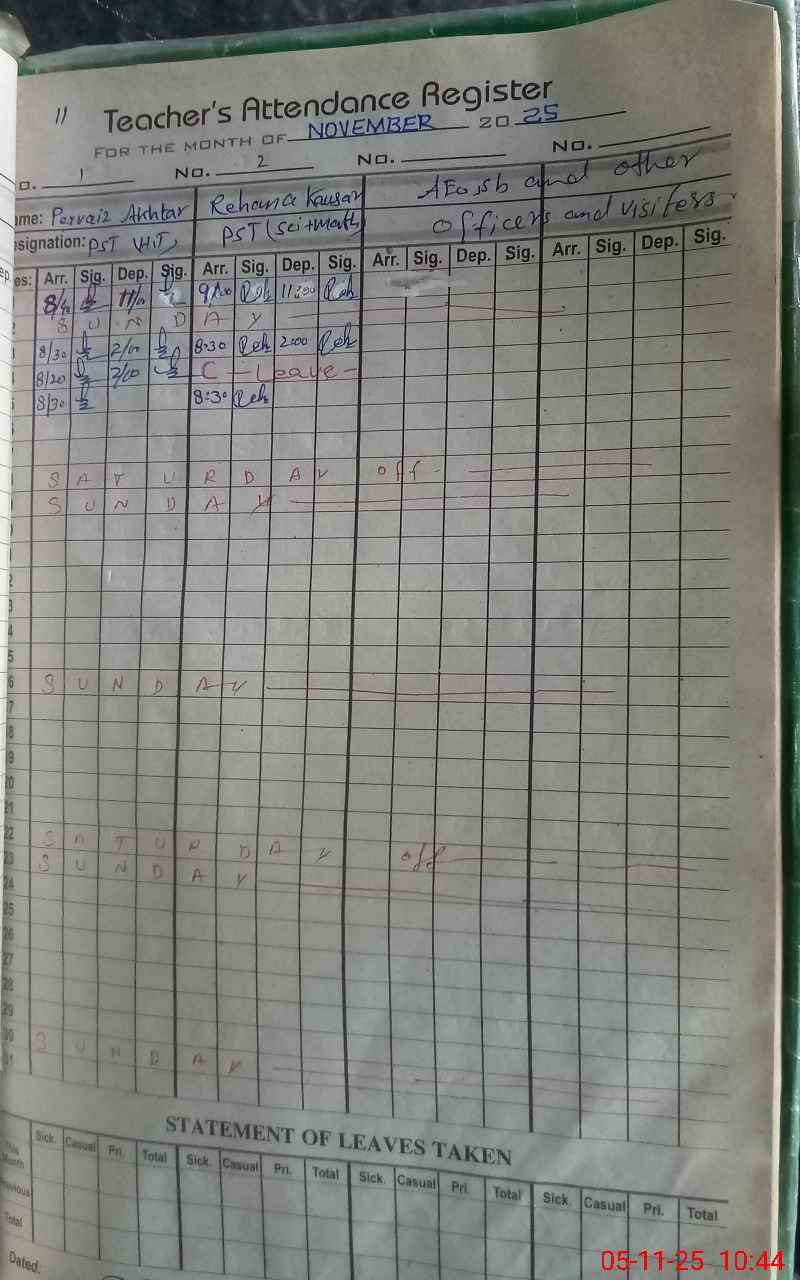 11 Teacher's Attendance Register
FOR THE MONTH OF NOVEMBER 20 25
o. 1 No. 2 No. No.
ame: Pervaiz Akhtar Rehana Kausar AEo,sb and other
esignation: PST HT, PST (Sci+math) officers and visiters
es: Arr. Sig. Dep. Sig. Arr. Sig. Dep. Sig. Arr. Sig. Dep. Sig. Arr. Sig. Dep. Sig.
9/00 Reh 11:00 Reh
S U N D A Y
8/30 2/00 8:30 Reh 2:00 Reh
8/20 2/00 C - Leave -
8/30 8:30 Reh
S A T U R D A Y off -
S U N D A Y
1
2
3
4
5
6 S U N D A Y
7
8
9
20
21
22 S A T U R D A Y off
23 S U N D A Y
24
25
26
27
28
29
30 S U N D A Y
31
STATEMENT OF LEAVES TAKEN
Sick. Casual Pri. Total Sick. Casual Pri. Total Sick. Casual Pri. Total Sick. Casual Pri. Total
This Month
revious
Total
Dated:
05-11-25 10:44